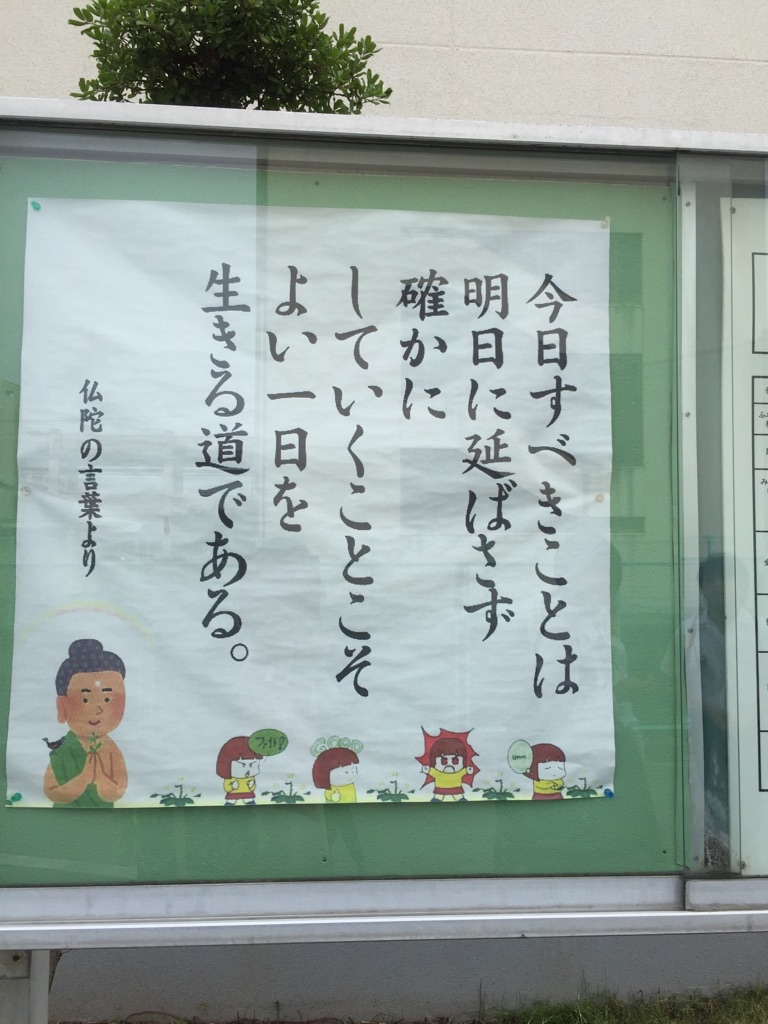 今日すべきことは
明日に延ばさず
確かに
していくことこそ
よい一日を
生きる道である。
仏陀の言葉より
ファイト!
GOOD